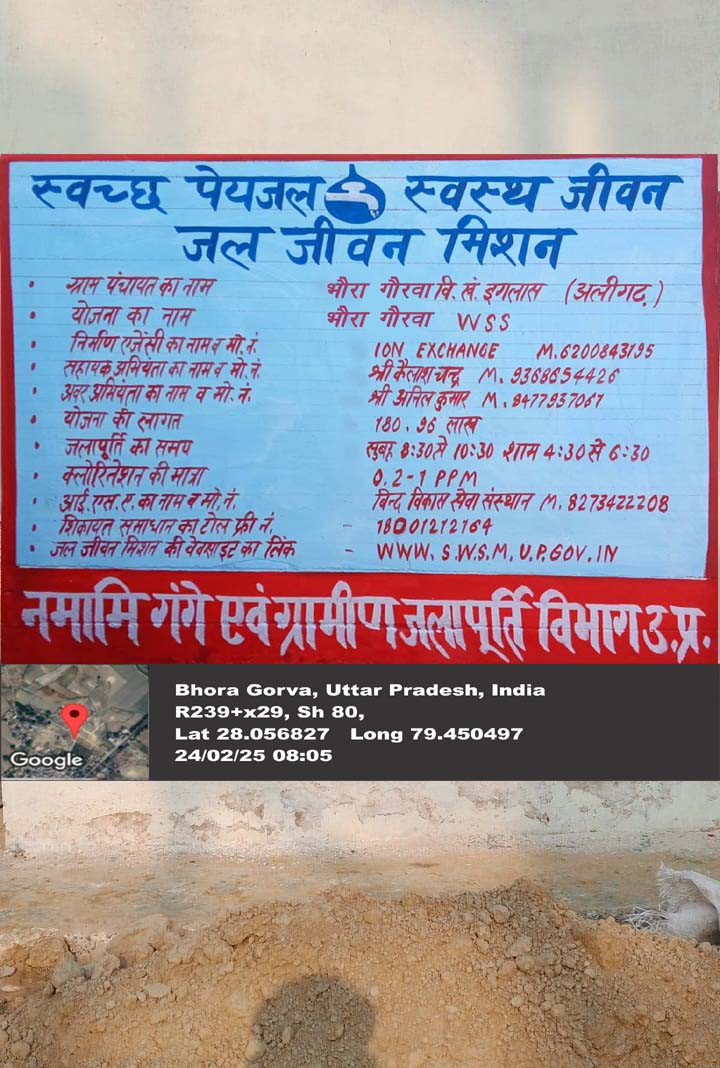 स्वच्छ पेयजल स्वस्थ जीवन
जल जीवन मिशन
• ग्राम पंचायत का नाम भौरा गौरवा वि. खं. इगलास (अलीगढ़)
• योजना का नाम भौरा गौरवा WSS
• निर्माण एजेंसी का नाम व मो. नं. ION EXCHANGE M. 6200843195
• सहायक अभियंता का नाम व मो. नं. श्री कैलाश चन्द्र M. 9368654426
• अवर अभियंता का नाम व मो. नं. श्री अनिल कुमार M. 8477937067
• योजना की लागत 180.96 लाख
• जलापूर्ति का समय सुबह 8:30 से 10:30 शाम 4:30 से 6:30
• क्लोरिनेशन की मात्रा 0.2-1 PPM
• आई. एस. ए. का नाम व मो. नं. बिन्द विकास सेवा संस्थान M. 8273422208
• शिकायत समाधान का टोल फ्री नं. - 18001212164
• जल जीवन मिशन की वेवसाइट का लिंक - WWW.S.W.S.M.U.P.GOV.IN
नमामि गंगे एवं ग्रामीण जलापूर्ति विभाग उ.प्र.
Bhora Gorva, Uttar Pradesh, India
R239+x29, Sh 80,
Lat 28.056827 Long 79.450497
24/02/25 08:05
Google